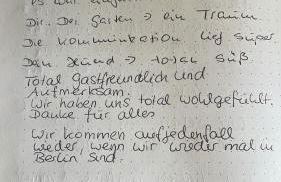 Der Garten → ein Traum
Die Kommunikation lief super
Dein Hund → total süß
Total gastfreundlich und
Aufmerksam.
Wir haben uns total wohlgefühlt.
Danke für alles
Wir kommen aufjedenfall
wieder, wenn wir wieder mal in
Berlin sind.